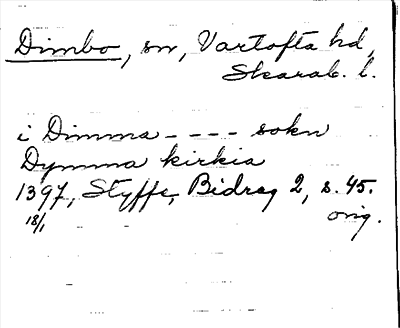 Dimbo, sn, Vartofta hd,
Skarab. l.
i Dimma - - - - sokn
Dymma kirkia
1397, Styffe, Bidrag 2, s. 45.
18/1 orig.